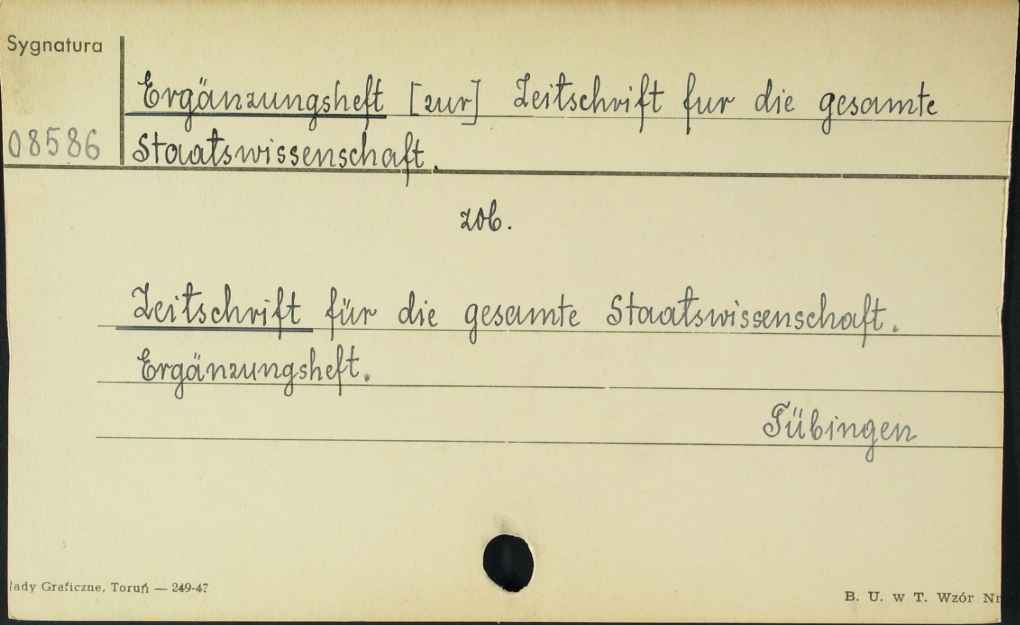 Sygnatura
Ergänzungsheft [zur] Zeitschrift fur die gesamte
08586 Staatswissenschaft.
zob.
Zeitschrift für die gesamte Staatswissenschaft.
Ergänzungsheft.
Tübingen
łady Graficzne, Toruń — 249-47
B. U. w T. Wzór Nr